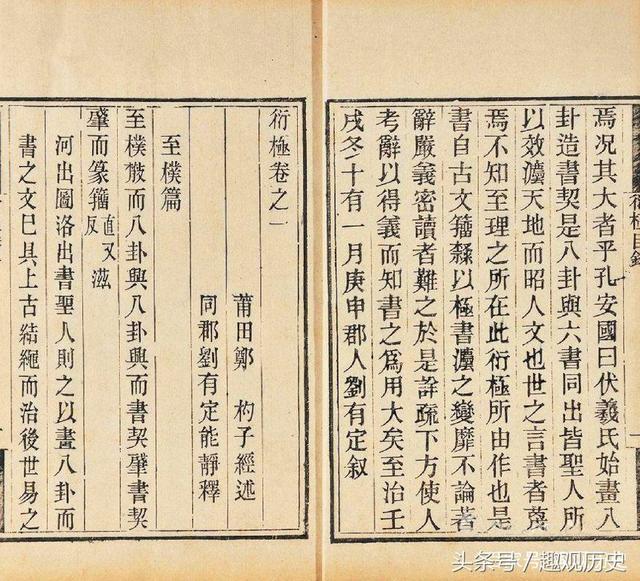 焉况其大者乎孔安國曰伏羲氏始畫八
卦造書契是八卦與六書同出皆聖人所
以效灋天地而昭人文也世之言書者蔑
焉不知至理之所在此衍極所由作也是
書自古文籀隸以極書灋之變靡不論著
辭嚴義密讀者難之於是詳疏下方使人
考辭以得義而知書之爲用大矣至治壬
戌冬十有一月庚申郡人劉有定叙
衍極目錄
衍極卷之一
莆田鄭 杓子經述
同郡劉有定能靜釋
至樸篇
至樸散而八卦興八卦興而書契肇書契
肇而篆籀
直又
反
滋
河出圖洛出書聖人則之以畫八卦而
書之文已具上古結繩而治後世易之
头条号/趣观历史